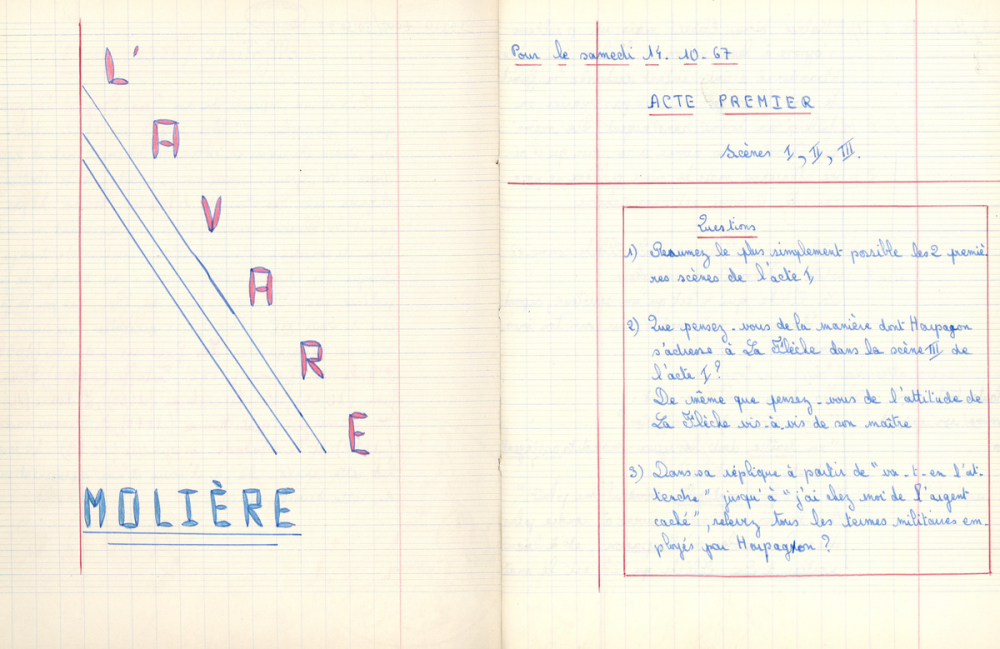 L'AVARE
MOLIÈRE
Pour le samedi 14. 10. 67
ACTE PREMIER
Scènes I, II, III.
Questions
1) Résumez le plus simplement possible les 2 premiè-
res scènes de l'acte I,
2) Que pensez-vous de la manière dont Harpagon
s'adresse à La Flèche dans la scène III de
l'acte I?
De même que pensez-vous de l'attitude de
La Flèche vis-à-vis de son maître
3) Dans sa réplique à partir de "va-t-en l'at-
tendre" jusqu'à "j'ai chez moi de l'argent
caché", relevez tous les termes militaires em-
ployés par Harpagon?